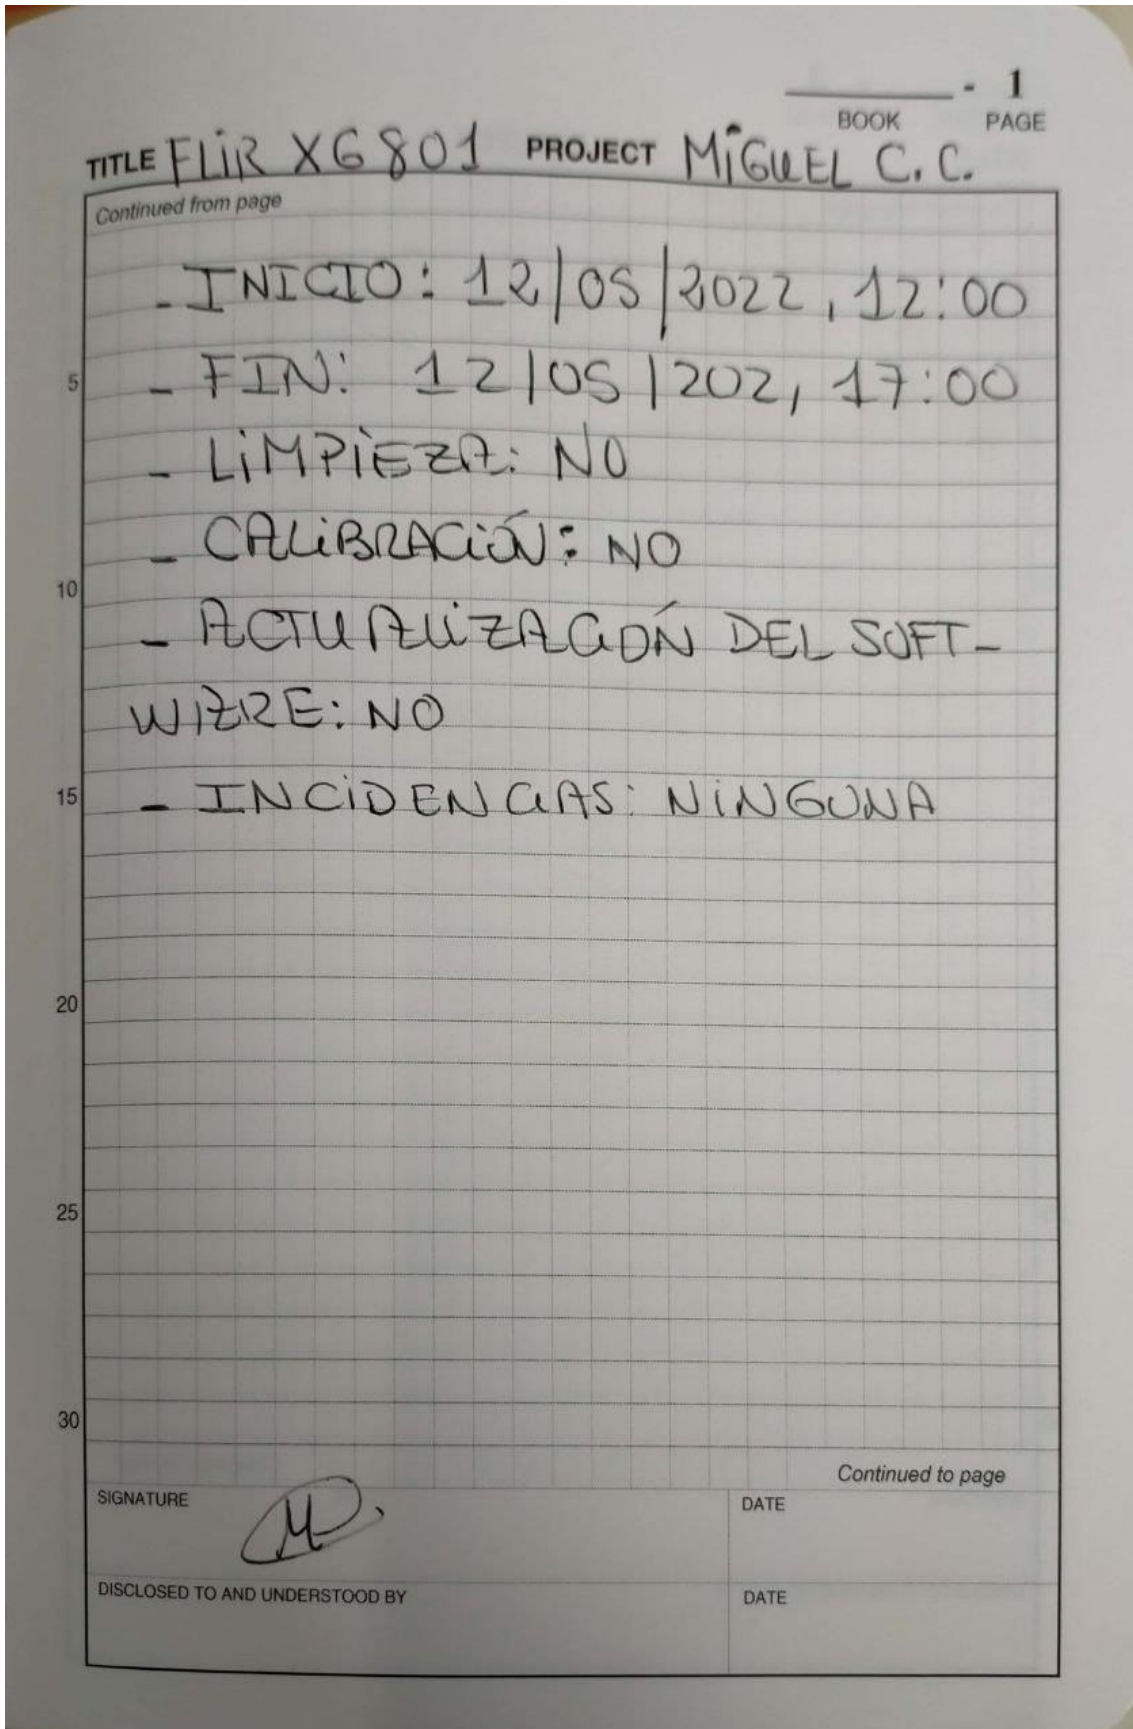 - 1
BOOK PAGE
TITLE FLiR X6801 PROJECT MiGUEL C.C.
Continued from page
- INICIO: 12/05/2022, 12:00
5
- FIN: 12/05/202, 17:00
- LiMPiEZA: NO
- CALiBRACiÓN: NO
10
- ACTUALiZACIÓN DEL SOFT-
WARE: NO
15
- INCiDENCIAS: NiNGUNA
20
25
30
Continued to page
SIGNATURE DATE
DISCLOSED TO AND UNDERSTOOD BY DATE